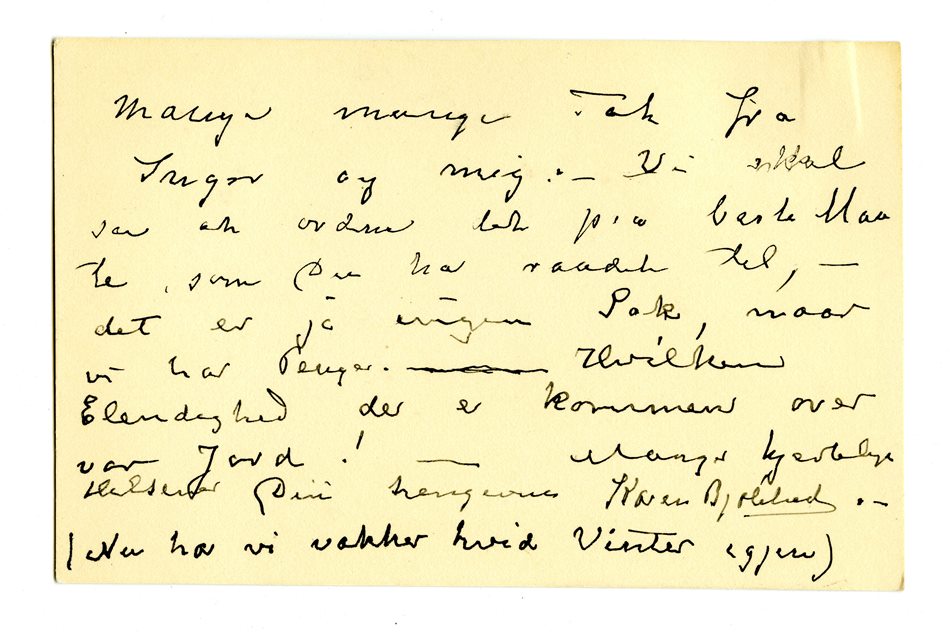 Mange mange Tak fra
Inger og mig. — Vi skal
se at ordne det paa beste Maa
te, som Du har raadet til, —
det er ja ingen Sak, naar
vi har Penger. Hvilken
Elendighed der er kommen over
vor Jord! — Mange hjertelige
Hilsener Din hengivne Karen Bjølstad. —
(Nu har vi vakker hvid Vinter igjen)